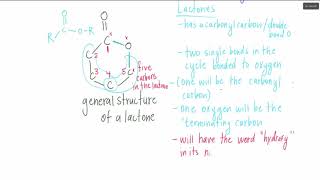 Lactones
R-C-O-R
O
- has a carbonyl carbon/double
bond O
- two single bonds in the
cycle bonded to oxygen
- (one will be the carbonyl
carbon)
- one oxygen will be the
"terminating carbon
- will have the word "hydroxy"
in its n
O
C
O
C 2
C 3
C 4
C 5
five
carbons
in the lactone
general structure
of a lactone